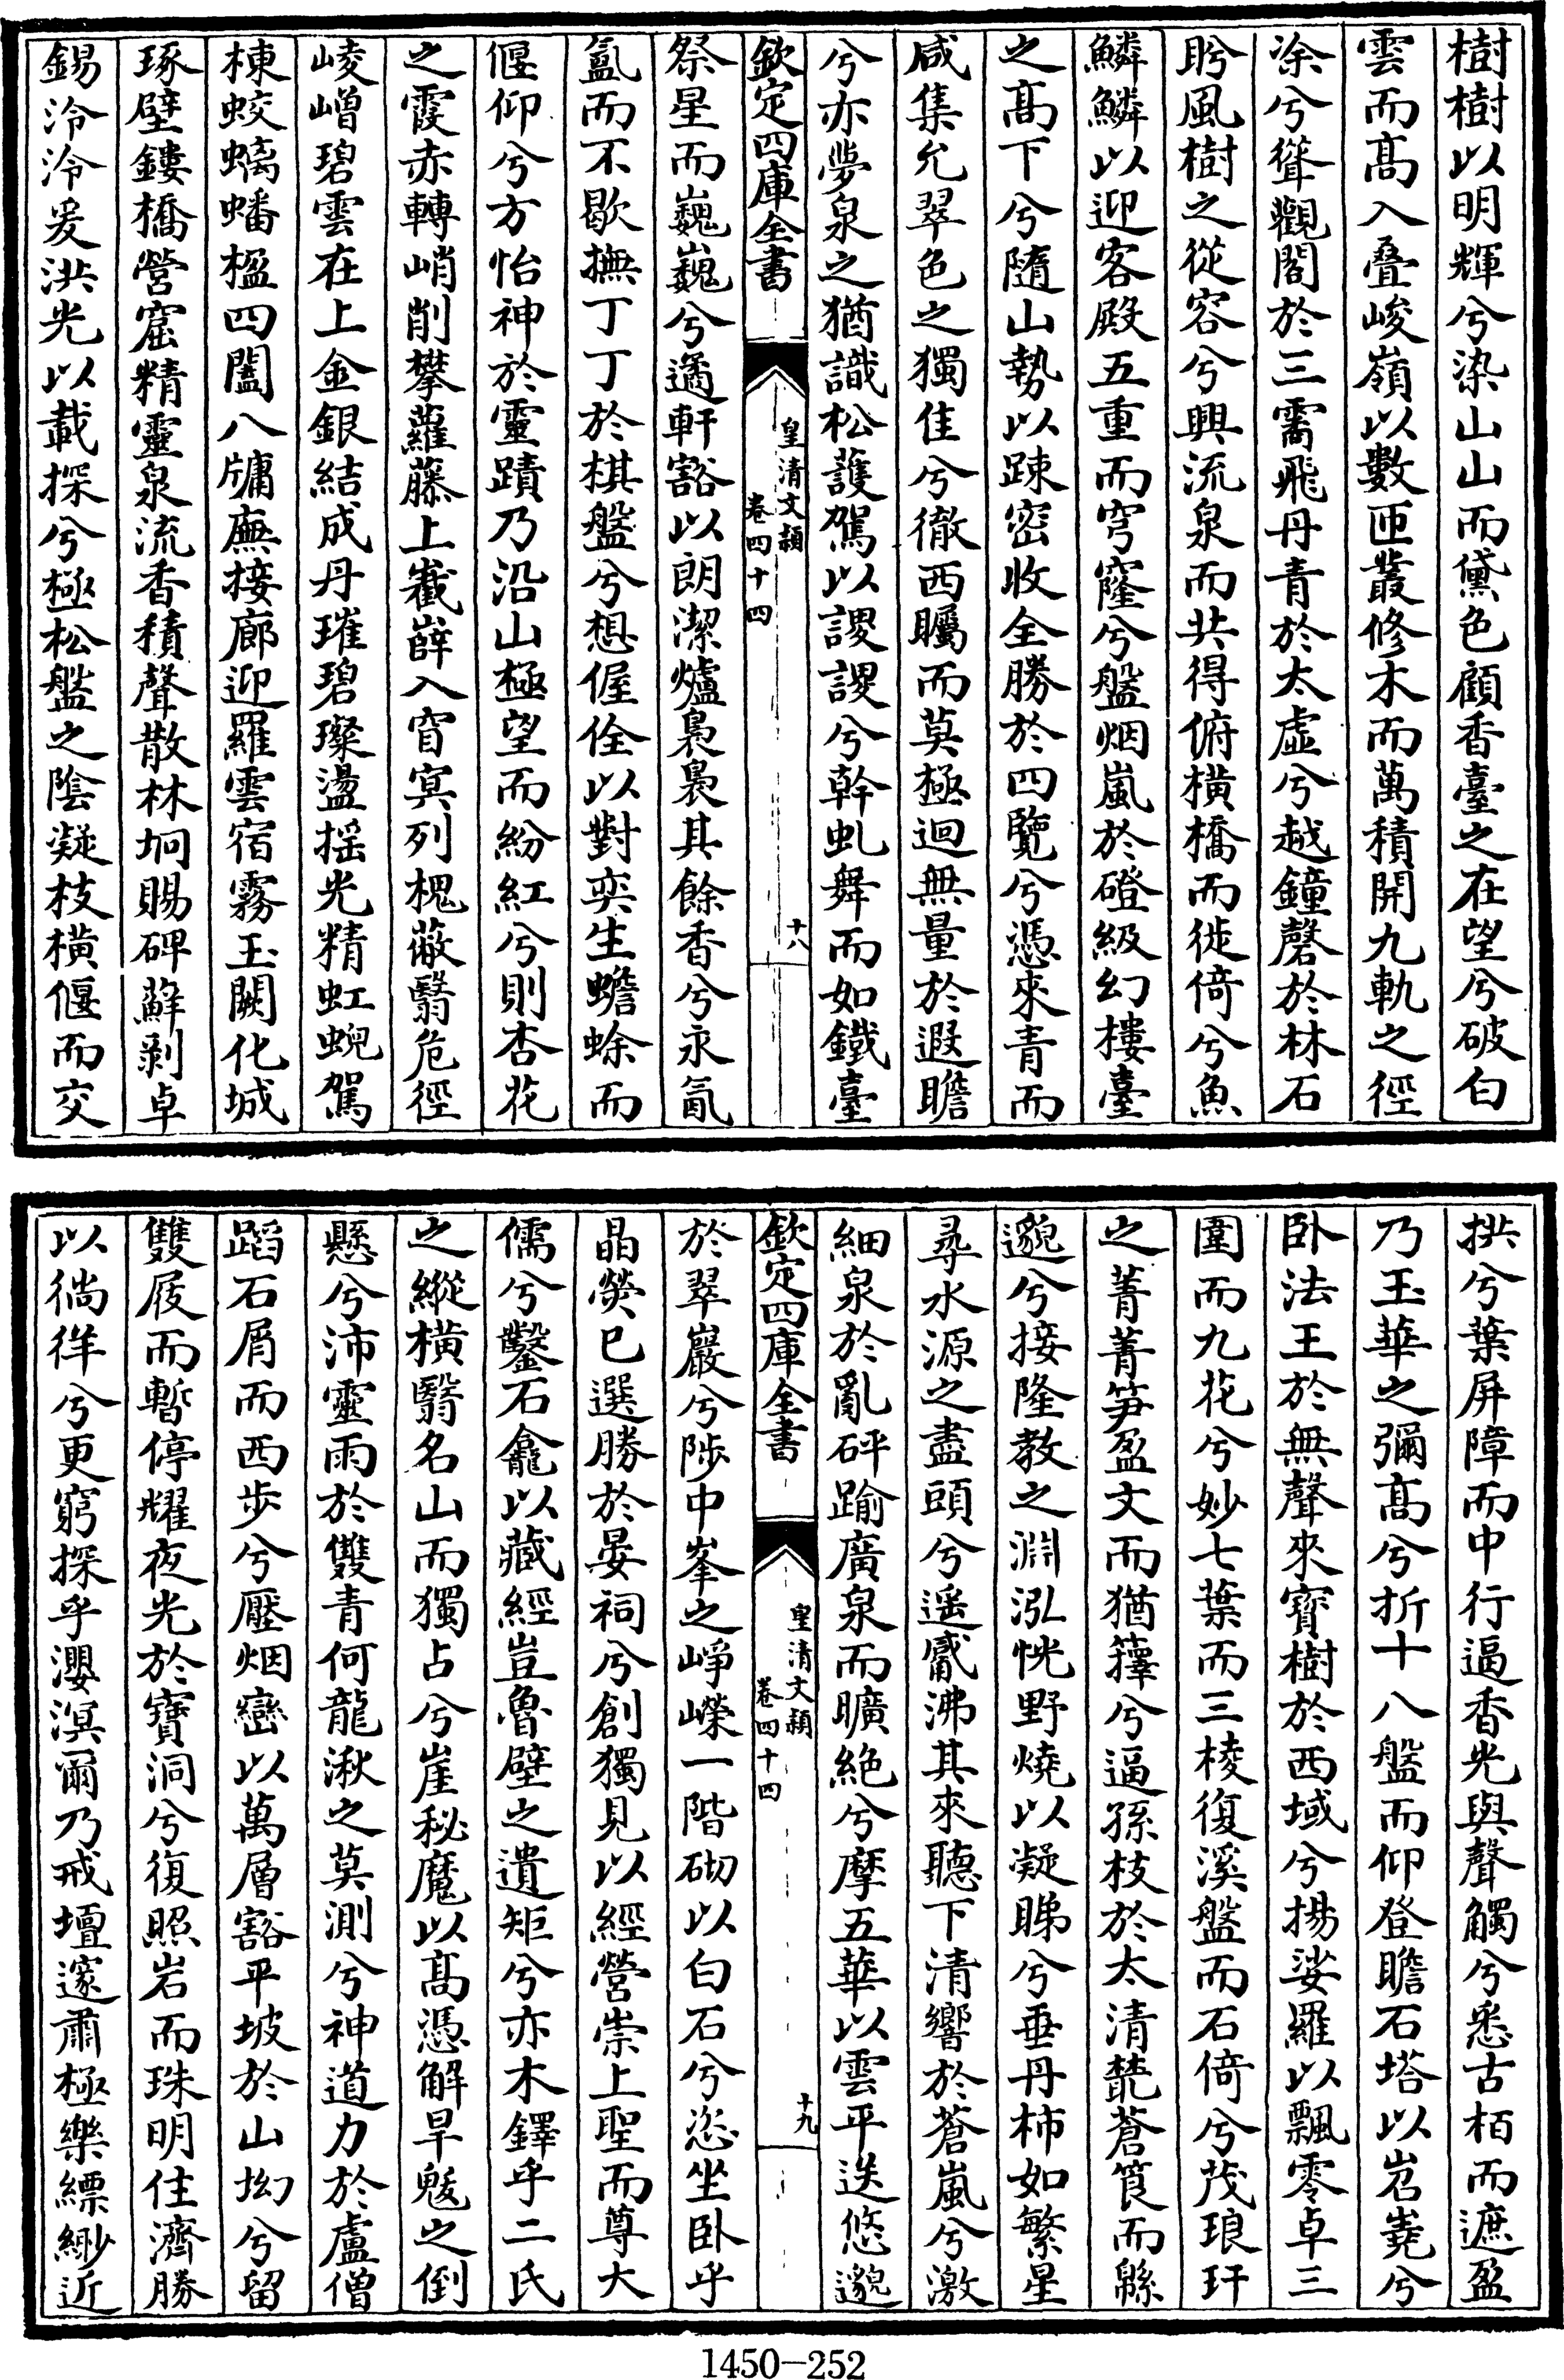 樹樹以明輝兮染山山而黛色顧香臺之在望兮破白
雲而髙入叠峻嶺以數匝叢修木而萬積開九軌之徑
涂兮聳觀閣於三霱飛丹青於太虚兮越鐘磬於林石
盻風樹之從容兮興流泉而共得俯横橋而徙倚兮魚
鱗鱗以迎客殿五重而穹窿兮盤烟嵐於磴級幻樓臺
之髙下兮隨山勢以踈密收全勝於四覽兮憑來青而
咸集允翠色之獨佳兮徹西矚而莫極迴無量於遐瞻
兮亦夢泉之猶識松護駕以謖謖兮幹虬舞而如鐵臺
欽定四庫全書
皇清文穎
卷四十四
十八
祭星而巍巍兮邁軒豁以朗潔爐裊裊其餘香兮永氤
氲而不歇撫丁丁於棋盤兮想偓佺以對奕生蟾蜍而
偃仰兮方怡神於靈蹟乃沿山極望而紛紅兮則杏花
之霞赤轉峭削攀蘿藤上嶻嶭入窅冥列槐蔽翳危徑
崚嶒碧雲在上金銀結成丹璀碧璨盪摇光精虹蜺駕
棟蛟螭蟠楹四闔八牗廡接廊迎羅雲宿霧玉闕化城
琢壁鏤橋營窟精靈泉流香積聲散林坰賜碑蘚剥卓
錫泠泠爰洪光以載探兮極松盤之陰凝枝横偃而交
拱兮葉屏障而中行逼香光與聲觸兮悉古栢而遮盈
乃玉華之彌髙兮折十八盤而仰登瞻石塔以岧嶤兮
卧法王於無聲來寳樹於西域兮揚娑羅以飄零卓三
圍而九花兮妙七葉而三棱復溪盤而石倚兮茂琅玕
之菁菁笋盈丈而猶籜兮逼孫枝於太清箢蒼筤而緜
邈兮接隆教之淵泓恍野燒以凝睇兮垂丹柿如繁星
尋水源之盡頭兮遥觱沸其來聽下清響於蒼嵐兮激
細泉於亂砰踰廣泉而曠絶兮摩五華以雲平迭悠邈
欽定四庫全書
皇清文穎
卷四十四
十九
於翠巖兮陟中峯之崢嶸一階砌以白石兮恣坐卧乎
晶熒已選勝於晏祠兮創獨見以經營崇上聖而尊大
儒兮鑿石龕以藏經豈魯壁之遺矩兮亦木鐸乎二氏
之縱横翳名山而獨占兮崖秘魔以髙憑解旱魃之倒
懸兮沛靈雨於雙青何龍湫之莫測兮神道力於盧僧
蹈石屑而西步兮壓烟巒以萬層豁平坡於山坳兮留
雙屐而暫停耀夜光於寳洞兮復照岩而珠明住濟勝
以徜徉兮更窮探乎瀴溟爾乃戒壇邃肅極樂縹緲近
1450-252